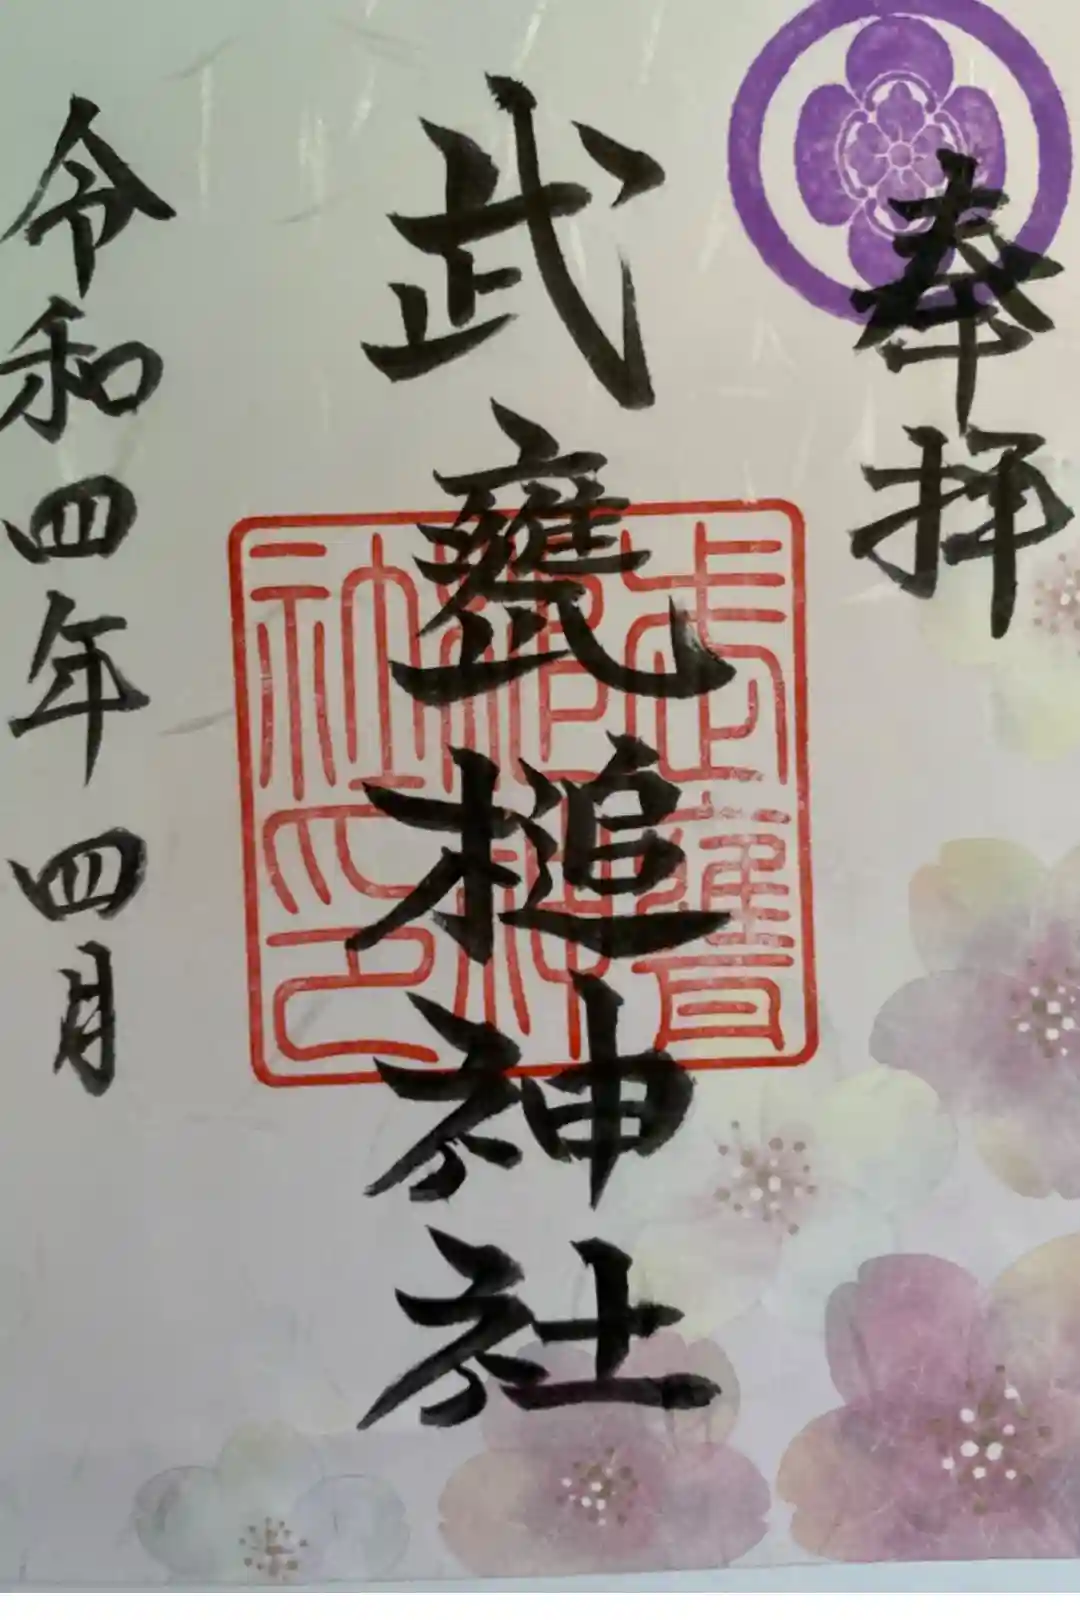 奉拝
武甕槌神社
武甕槌神社印
令和四年 四月